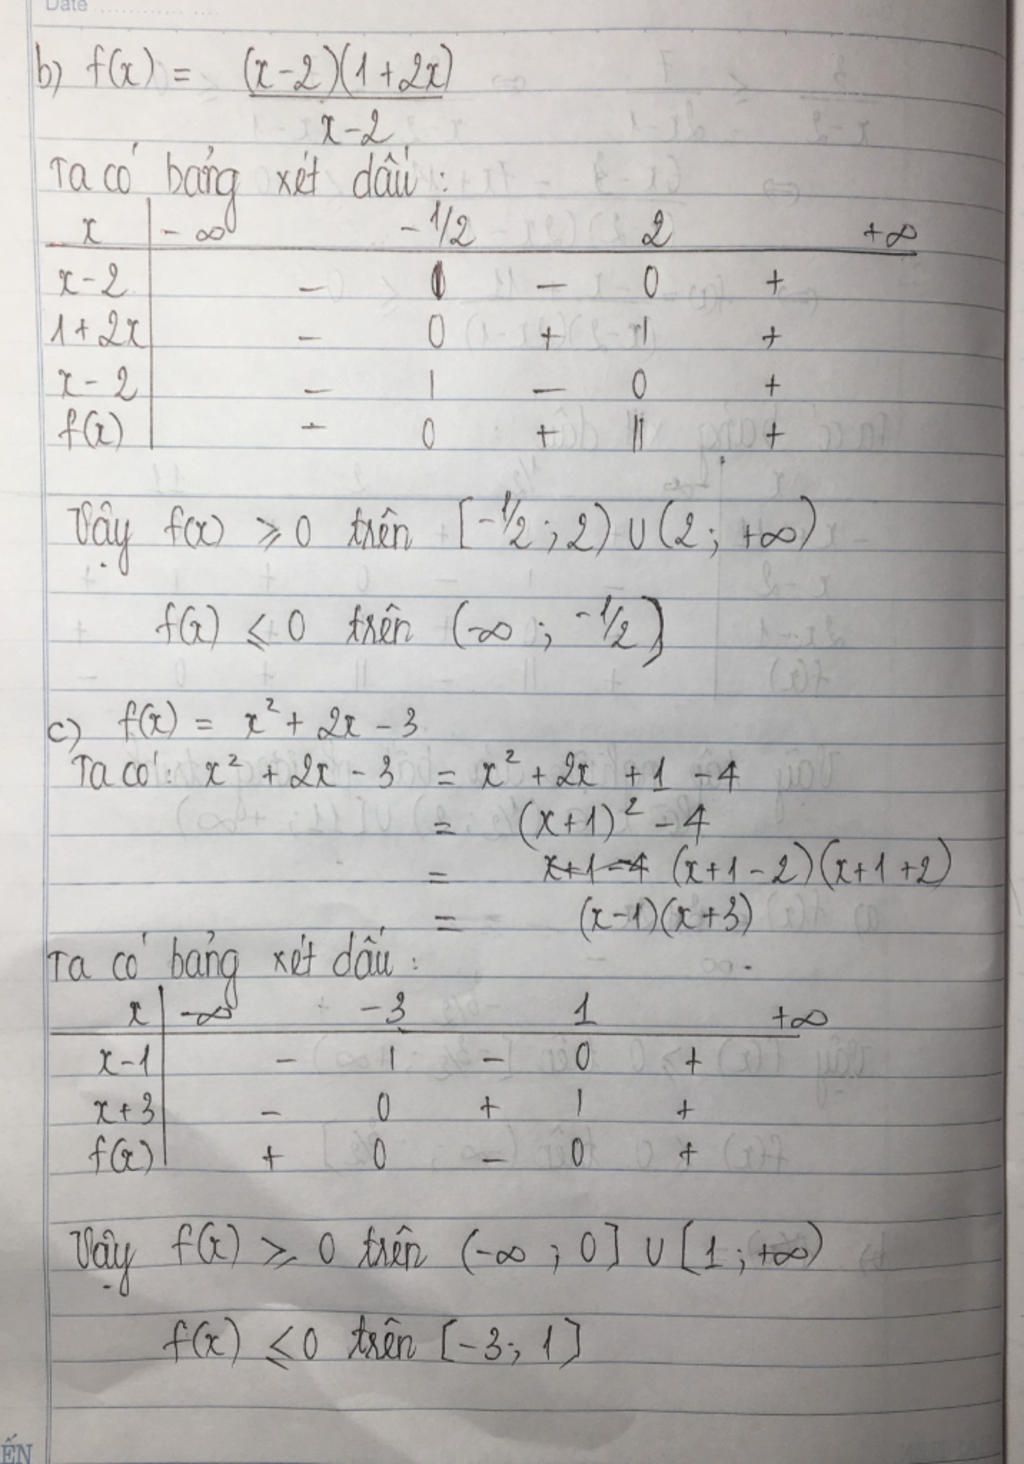 Date
b) f(x) = (x-2)(1+2x)
x-2
Ta có bảng xét dấu:
x -∞ -1/2 2 +∞
x-2 - | - 0 +
1+2x - 0 + | +
x-2 - | - 0 +
f(x) - 0 + || +
Vậy f(x) ⩾ 0 trên [-1/2; 2) ∪ (2; +∞)
f(x) ⩽ 0 trên (-∞; -1/2]
c) f(x) = x² + 2x - 3
Ta có: x² + 2x - 3 = x² + 2x + 1 - 4
= (x+1)² - 4
= x+1-4 (x+1-2)(x+1+2)
= (x-1)(x+3)
Ta có bảng xét dấu:
x -∞ -3 1 +∞
x-1 - | - 0 +
x+3 - 0 + | +
f(x) + 0 - 0 +
Vậy f(x) ⩾ 0 trên (-∞; 0] ∪ [1; +∞)
f(x) ⩽ 0 trên [-3; 1]
ẾN